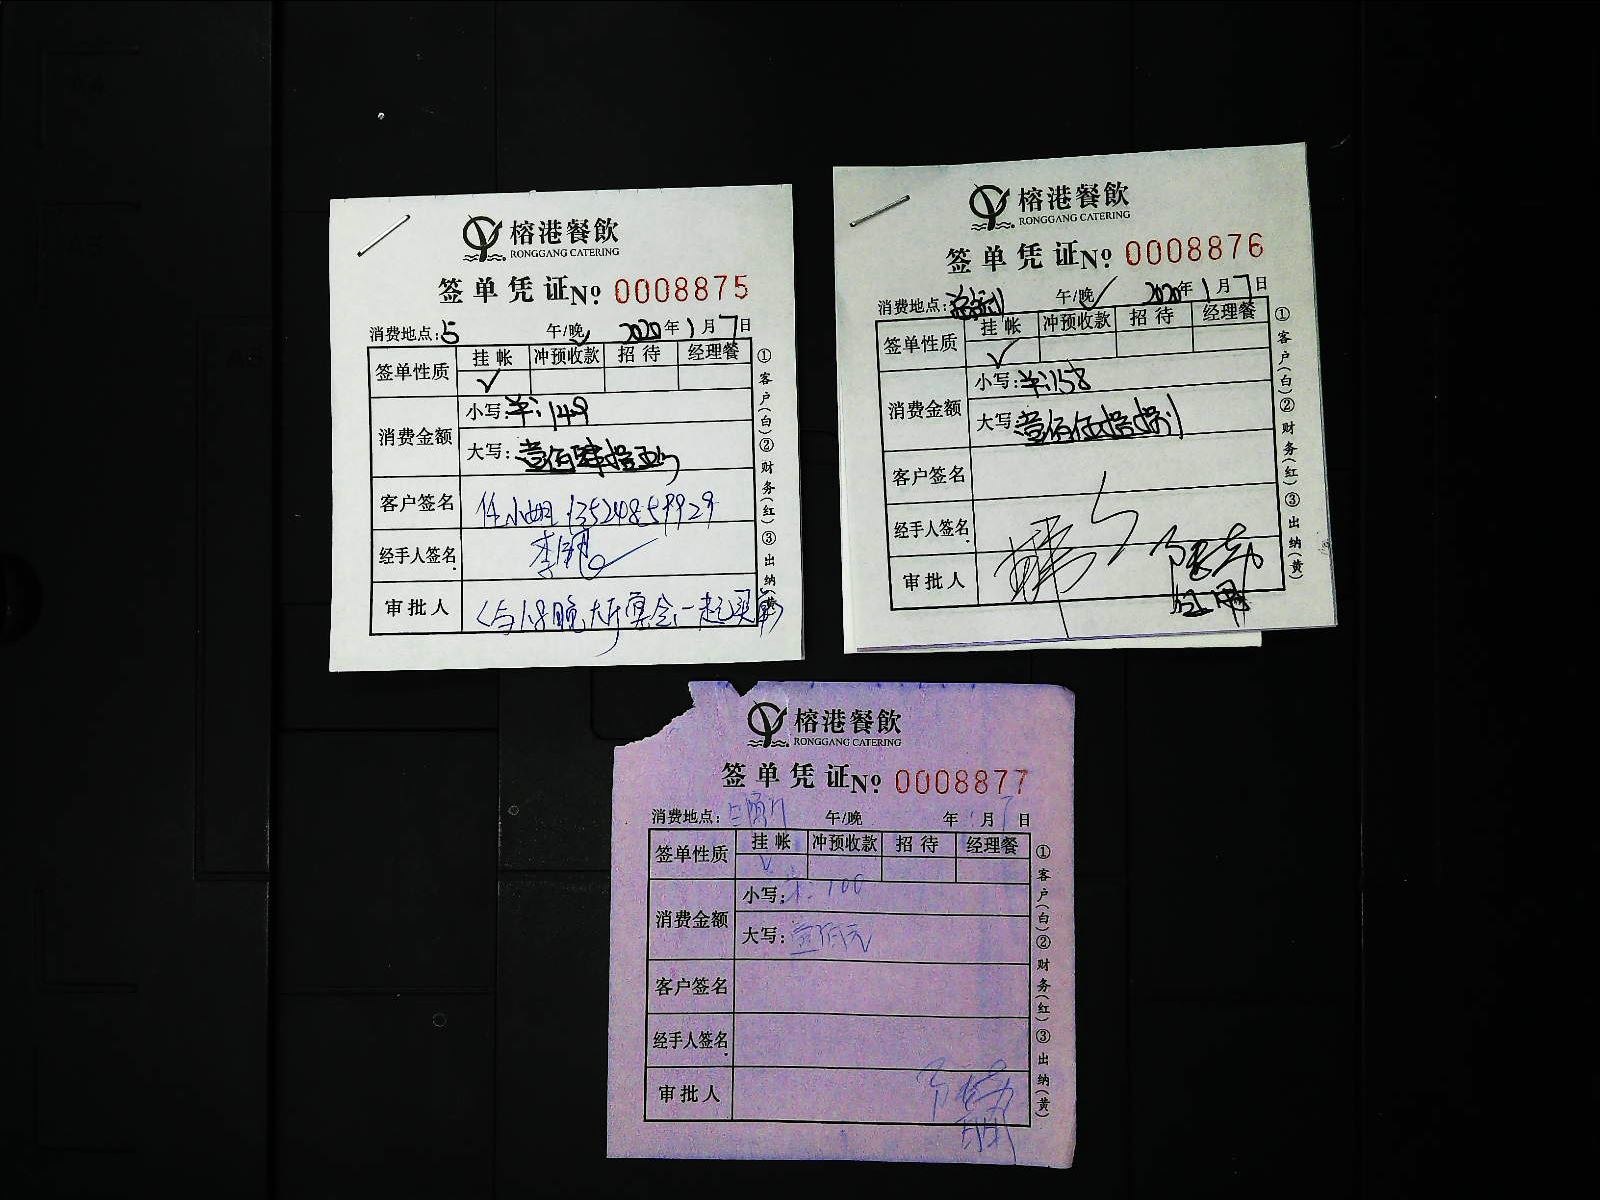 榕港餐飲
RONGGANG CATERING
签单凭证 Nº 0008875
消费地点: 5 午/晚 2020年1月7日
签单性质 挂帐 冲预收款 招待 经理餐
✓
消费金额
小写: 149
大写: 壹佰肆拾
客户签名 任小姐 13524859929
经手人签名
审批人 (与1.8晚大厅宴会一起买单)
①客户(白)②财务(红)③出纳(黄)
榕港餐飲
RONGGANG CATERING
签单凭证 Nº 0008876
消费地点: 午/晚 ✓ 2020年1月7日
签单性质 挂帐 冲预收款 招待 经理餐
✓
消费金额
小写: 158
大写: 壹佰伍拾捌
客户签名
经手人签名
审批人
①客户(白)②财务(红)③出纳(黄)
榕港餐飲
RONGGANG CATERING
签单凭证 Nº 0008877
消费地点: 午/晚 年1月7日
签单性质 挂帐 冲预收款 招待 经理餐
✓
消费金额
小写: 100
大写: 壹佰元
客户签名
经手人签名
审批人
①客户(白)②财务(红)③出纳(黄)